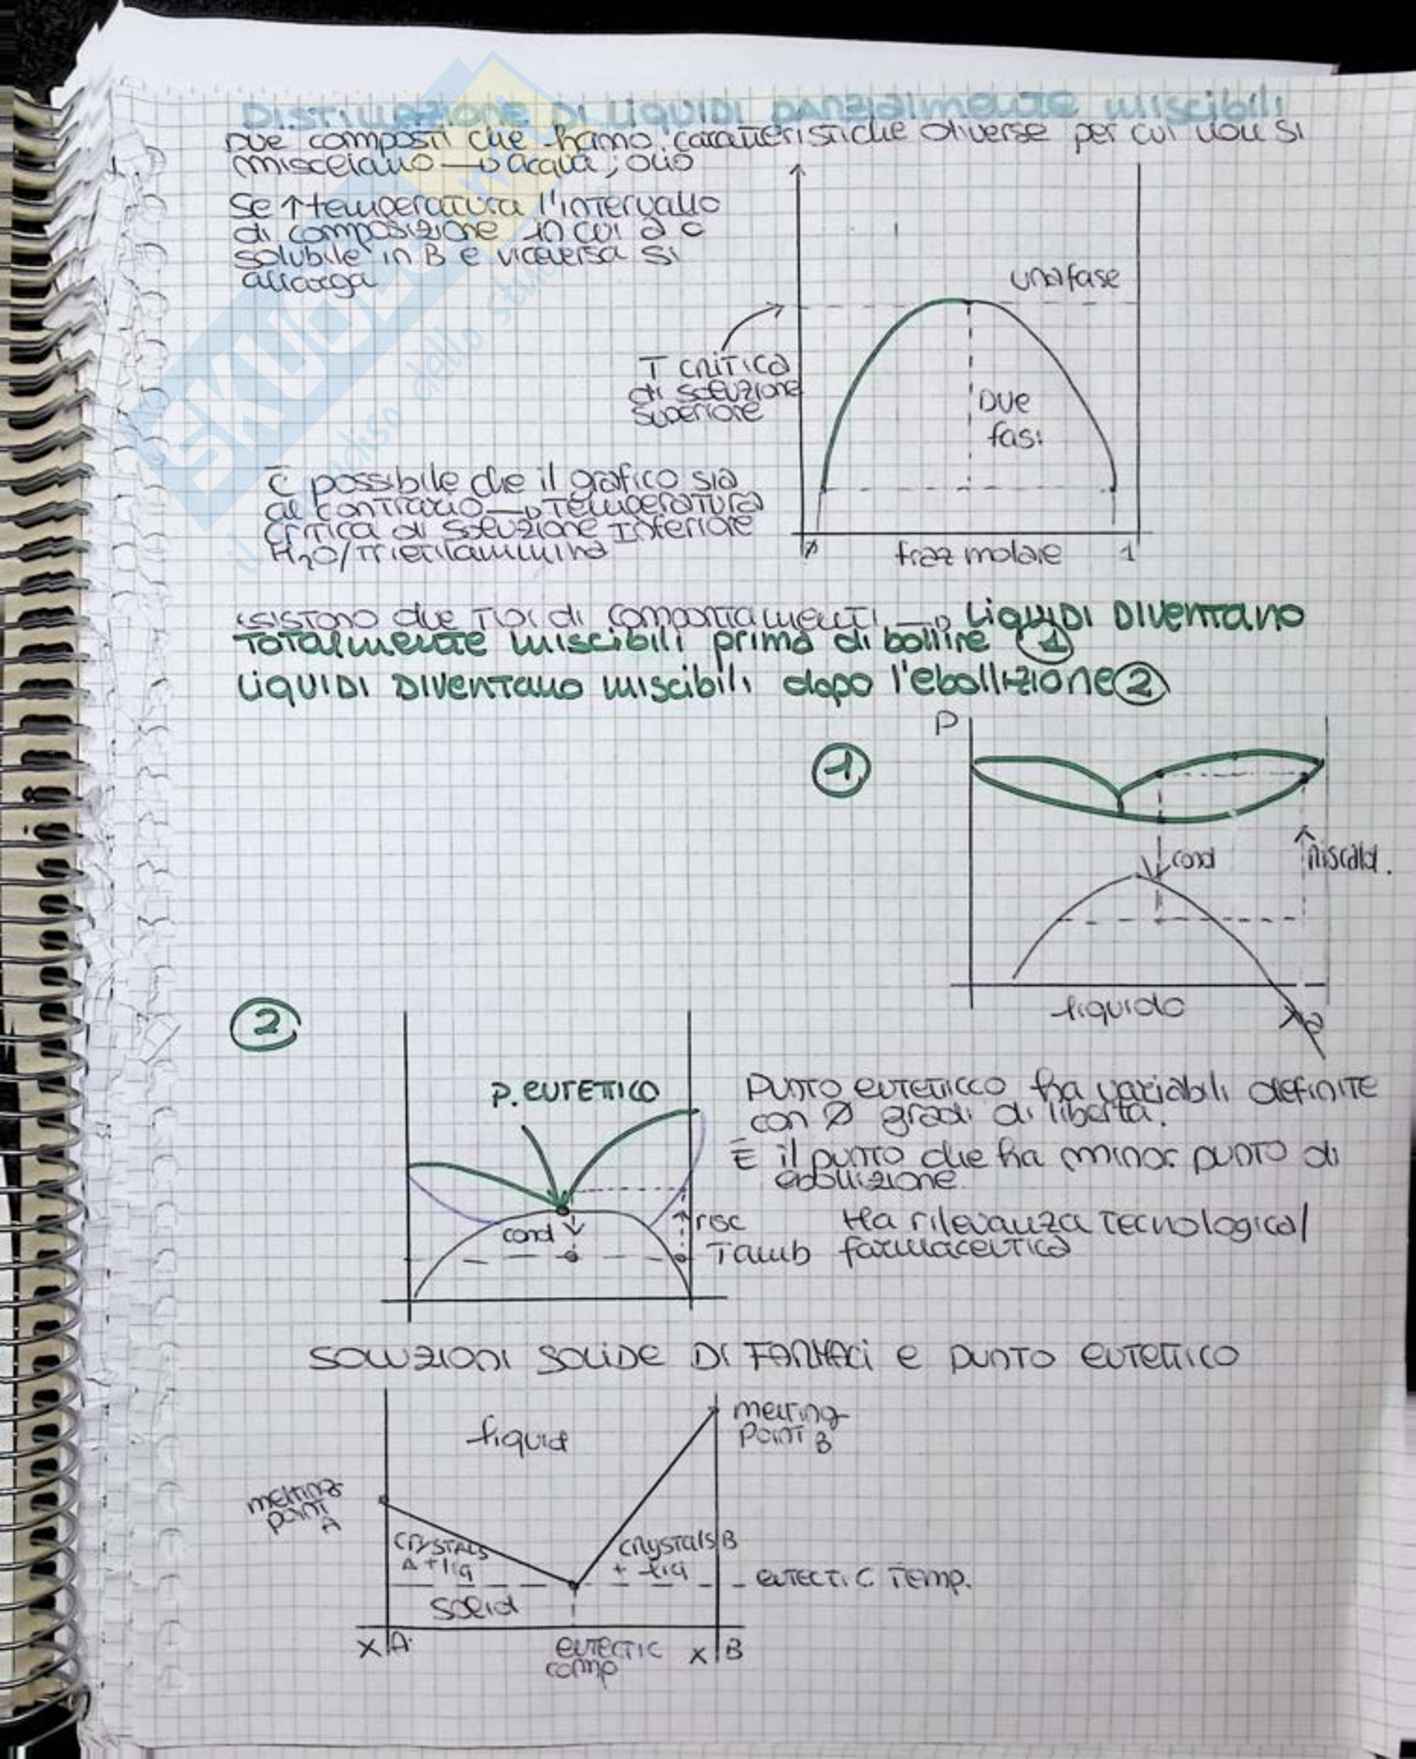 DISTILLAZIONE DI LIQUIDI PARZIALMENTE MISCIBILI
Due composti che hanno caratteristiche diverse per cui non si
misceiano → acqua; olio
Se ↑ temperatura l'intervallo
di composizione in cui a è
solubile in B e viceversa si
allarga
una fase
T critica
di soluzione
superiore
Due
fasi
È possibile che il grafico sia
al contrario → Temperatura
critica di soluzione Inferiore
H2O/trietilammina
ø
fraz molare
1
esistono due tipi di comportamenti → LIQUIDI DIVENTANO
TOTALMENTE miscibili prima di bollire ①
LIQUIDI DIVENTANO miscibili dopo l'ebollizione ②
P
①
cond
riscald.
liquido
②
P. EUTETTICO
Punto eutetticco ha variabili definite
con Ø gradi di libertà.
È il punto che ha minor punto di
ebollizione
cond
risc
Tamb
Ha rilevanza tecnologica/
farmaceutica
SOLUZIONI SOLIDE DI FARMACI e PUNTO EUTETTICO
liquid
melting
point B
melting
point
A
crystals
A + liq
crystals B
+ liq
eutectic Temp.
solid
X A
eutectic
comp
X B